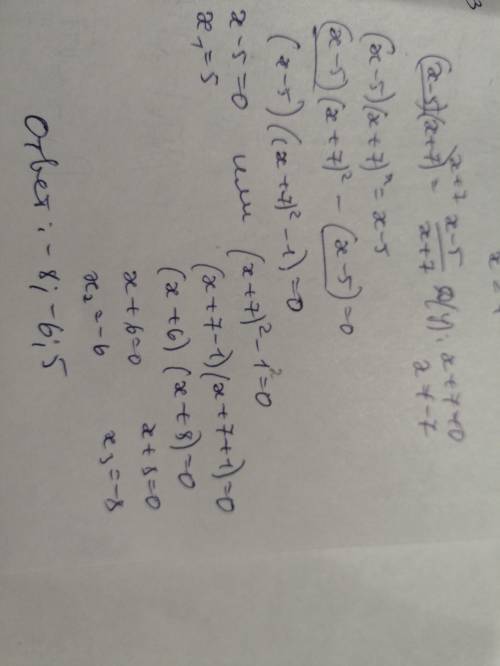 (x-5)(x+7) = x-5/x+7 ДУ: x+7≠0
x≠-7
(x-5)(x+7)² = x-5
(x-5)(x+7)² - (x-5) = 0
(x-5)((x+7)²-1) = 0
x-5=0 или (x+7)²-1²=0
x₁=5 (x+7-1)(x+7+1)=0
(x+6)(x+8)=0
x+6=0 x+8=0
x₂=-6 x₃=-8
Ответ: -8; -6; 5